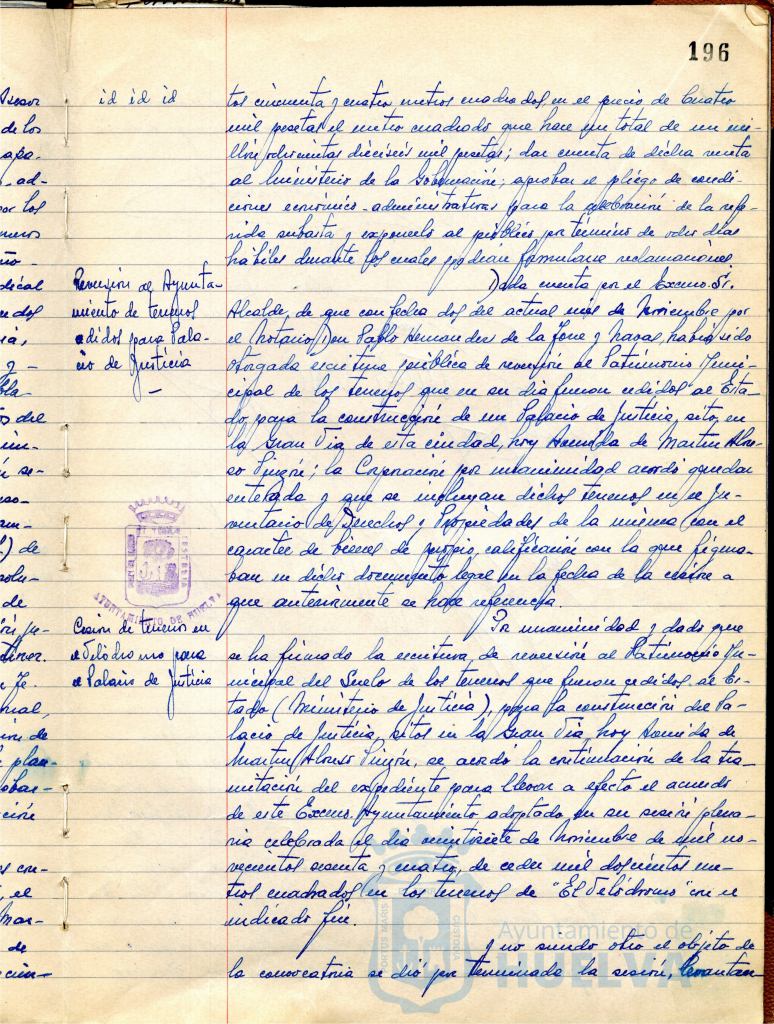 196
id id id
tos cincuenta y cuatro metros cuadrados en el precio de Cuatro
mil pesetas el metro cuadrado que hace un total de un mi-
llón ochocientas dieciseis mil pesetas; dar cuenta de dicha venta
al Ministerio de la Gobernación; aprobar el pliego de condi-
ciones económico-administrativas para la celebración de la refe-
rida subasta y exponerlo al público por término de ocho días
hábiles durante los cuales podrán formularse reclamaciones.
Reversión al Ayunta-
miento de terrenos
cedidos para Pala-
cio de Justicia
Dada cuenta por el Excmo. Sr.
Alcalde, de que con fecha dos del actual mes de Noviembre por
el Notario Don Pablo Hernandez de la Torre y Navas, había sido
otorgada escritura pública de reversión al Patrimonio Muni-
cipal de los terrenos que en su día fueron cedidos al Esta-
do, para la construcción de un Palacio de Justicia, sito en
la Gran Via de esta ciudad, hoy Avenida de Martin Alon-
so Pinzón; la Corporación por unanimidad acordó quedar
enterada y que se incluyan dichos terrenos en el In-
ventario de Derechos y Propiedades de la misma con el
caracter de bienes de propio, calificación con la que figura-
ban en dicho documento legal en la fecha de la cesión a
que anteriormente se hace referencia.
AYUNTAMIENTO DE HUELVA
Cesión de terrenos en
el Velódromo para
el Palacio de Justicia
Por unanimidad y dado que
se ha firmado la escritura de reversión al Patrimonio Mu-
nicipal del Suelo de los terrenos que fueron cedidos al Es-
tado (Ministerio de Justicia), para la construcción del Pa-
lacio de Justicia, sitos en la Gran Via, hoy Avenida de
Martin Alonso Pinzón, se acordó la continuación de la tra-
mitación del expediente para llevar a efecto el acuerdo
de este Excmo. Ayuntamiento adoptado en su sesión plena-
ria celebrada el día veintisiete de noviembre de mil no-
vecientos sesenta y cuatro, de ceder mil doscientos me-
tros cuadrados en los terrenos de "El Velódromo" con el
indicado fin.
Y no siendo otro el objeto de
la convocatoria se dió por terminada la sesión, levantan-
Ayuntamiento de
HUELVA